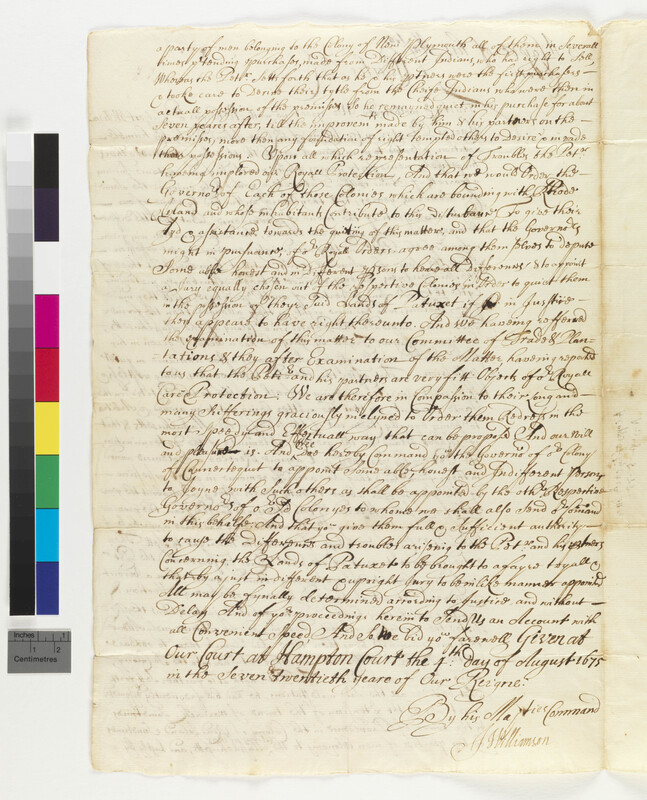 a party of men belonging to the Colony of New Plymouth all of them in Severall
times p'tending purchases, made from Different Indians, who had right to Sell,
Whereas the Petr. Setts forth that as he & his ptners were the first purchasers
& tooke care to Derive their tytle from the Cheife Indians who were then in
actuall possession of the premises So he remayned quiet in his purchase for about
Seven yeares after, till the Improvemt. made by him & his partners on the
premisses, more then any foundation of right tempted others to desire & invade
their possessions Upon all which representation of Troubles the Petr.
having implored our Royall Protection, And that we would Order the
Governors of Each of those Colonies which are bounding with Rhode
Island and whose inhabitants Contribute to this disturbance To give their
Ayd & assistance towards the quieting of this matter, and that the Governors
might in pursuance, of or. Royall Orders agree among themselves to depute
Some able honest and indifferent person to heare all differences & to appoint
a Jury equally chosen out of the respective Colonies in Order to quiet them
in the possession of theyr Said Lands of Patuxet if in Justice
they appeare to have right thereunto. And We having refferred
the examination of this matter to our Committee of Trade & Plan-
tations & they after Examination of the Matter having reported
to us that the Petr. and his partners are very fitt Objects of or. Royall
Care & Protection; We are therefore in Compassion to their long and
many Sufferings graciously inclyned to Order them Redress in the
most Speedy and Effectuall way that can be propos'd And our Will
and pleasure is. And Wee Doe hereby Command you the Governor. of or. Colony
of Connertequot to appoint Some able honest and Indifferent Persons
to Joyne with Such others as shall be appointed by the other Respective
Governors of or. Sd Colonyes to whome we shall also Send or. Comand
in this behalfe And that you give them full & Sufficient authority
to cause the differences and troubles arriseing to the Petr and his partners
Concerning the Lands of Patuxet to be brought to a fayre tryall &
that by a just indifferent & upright Jury to be in like manner appointed
All may be fynally determined according to Justice and without
Delay And of your proceedings herein to Send Us an Account with
all Convenient Speed And So We bid you farewell Given at
Our Court at Hampton Court the 4th day of August 1675
in the Seven & twentieth yeare of Our Reigne.
By his Majties Command
J Williamson
Inches
1
2
Centimetres